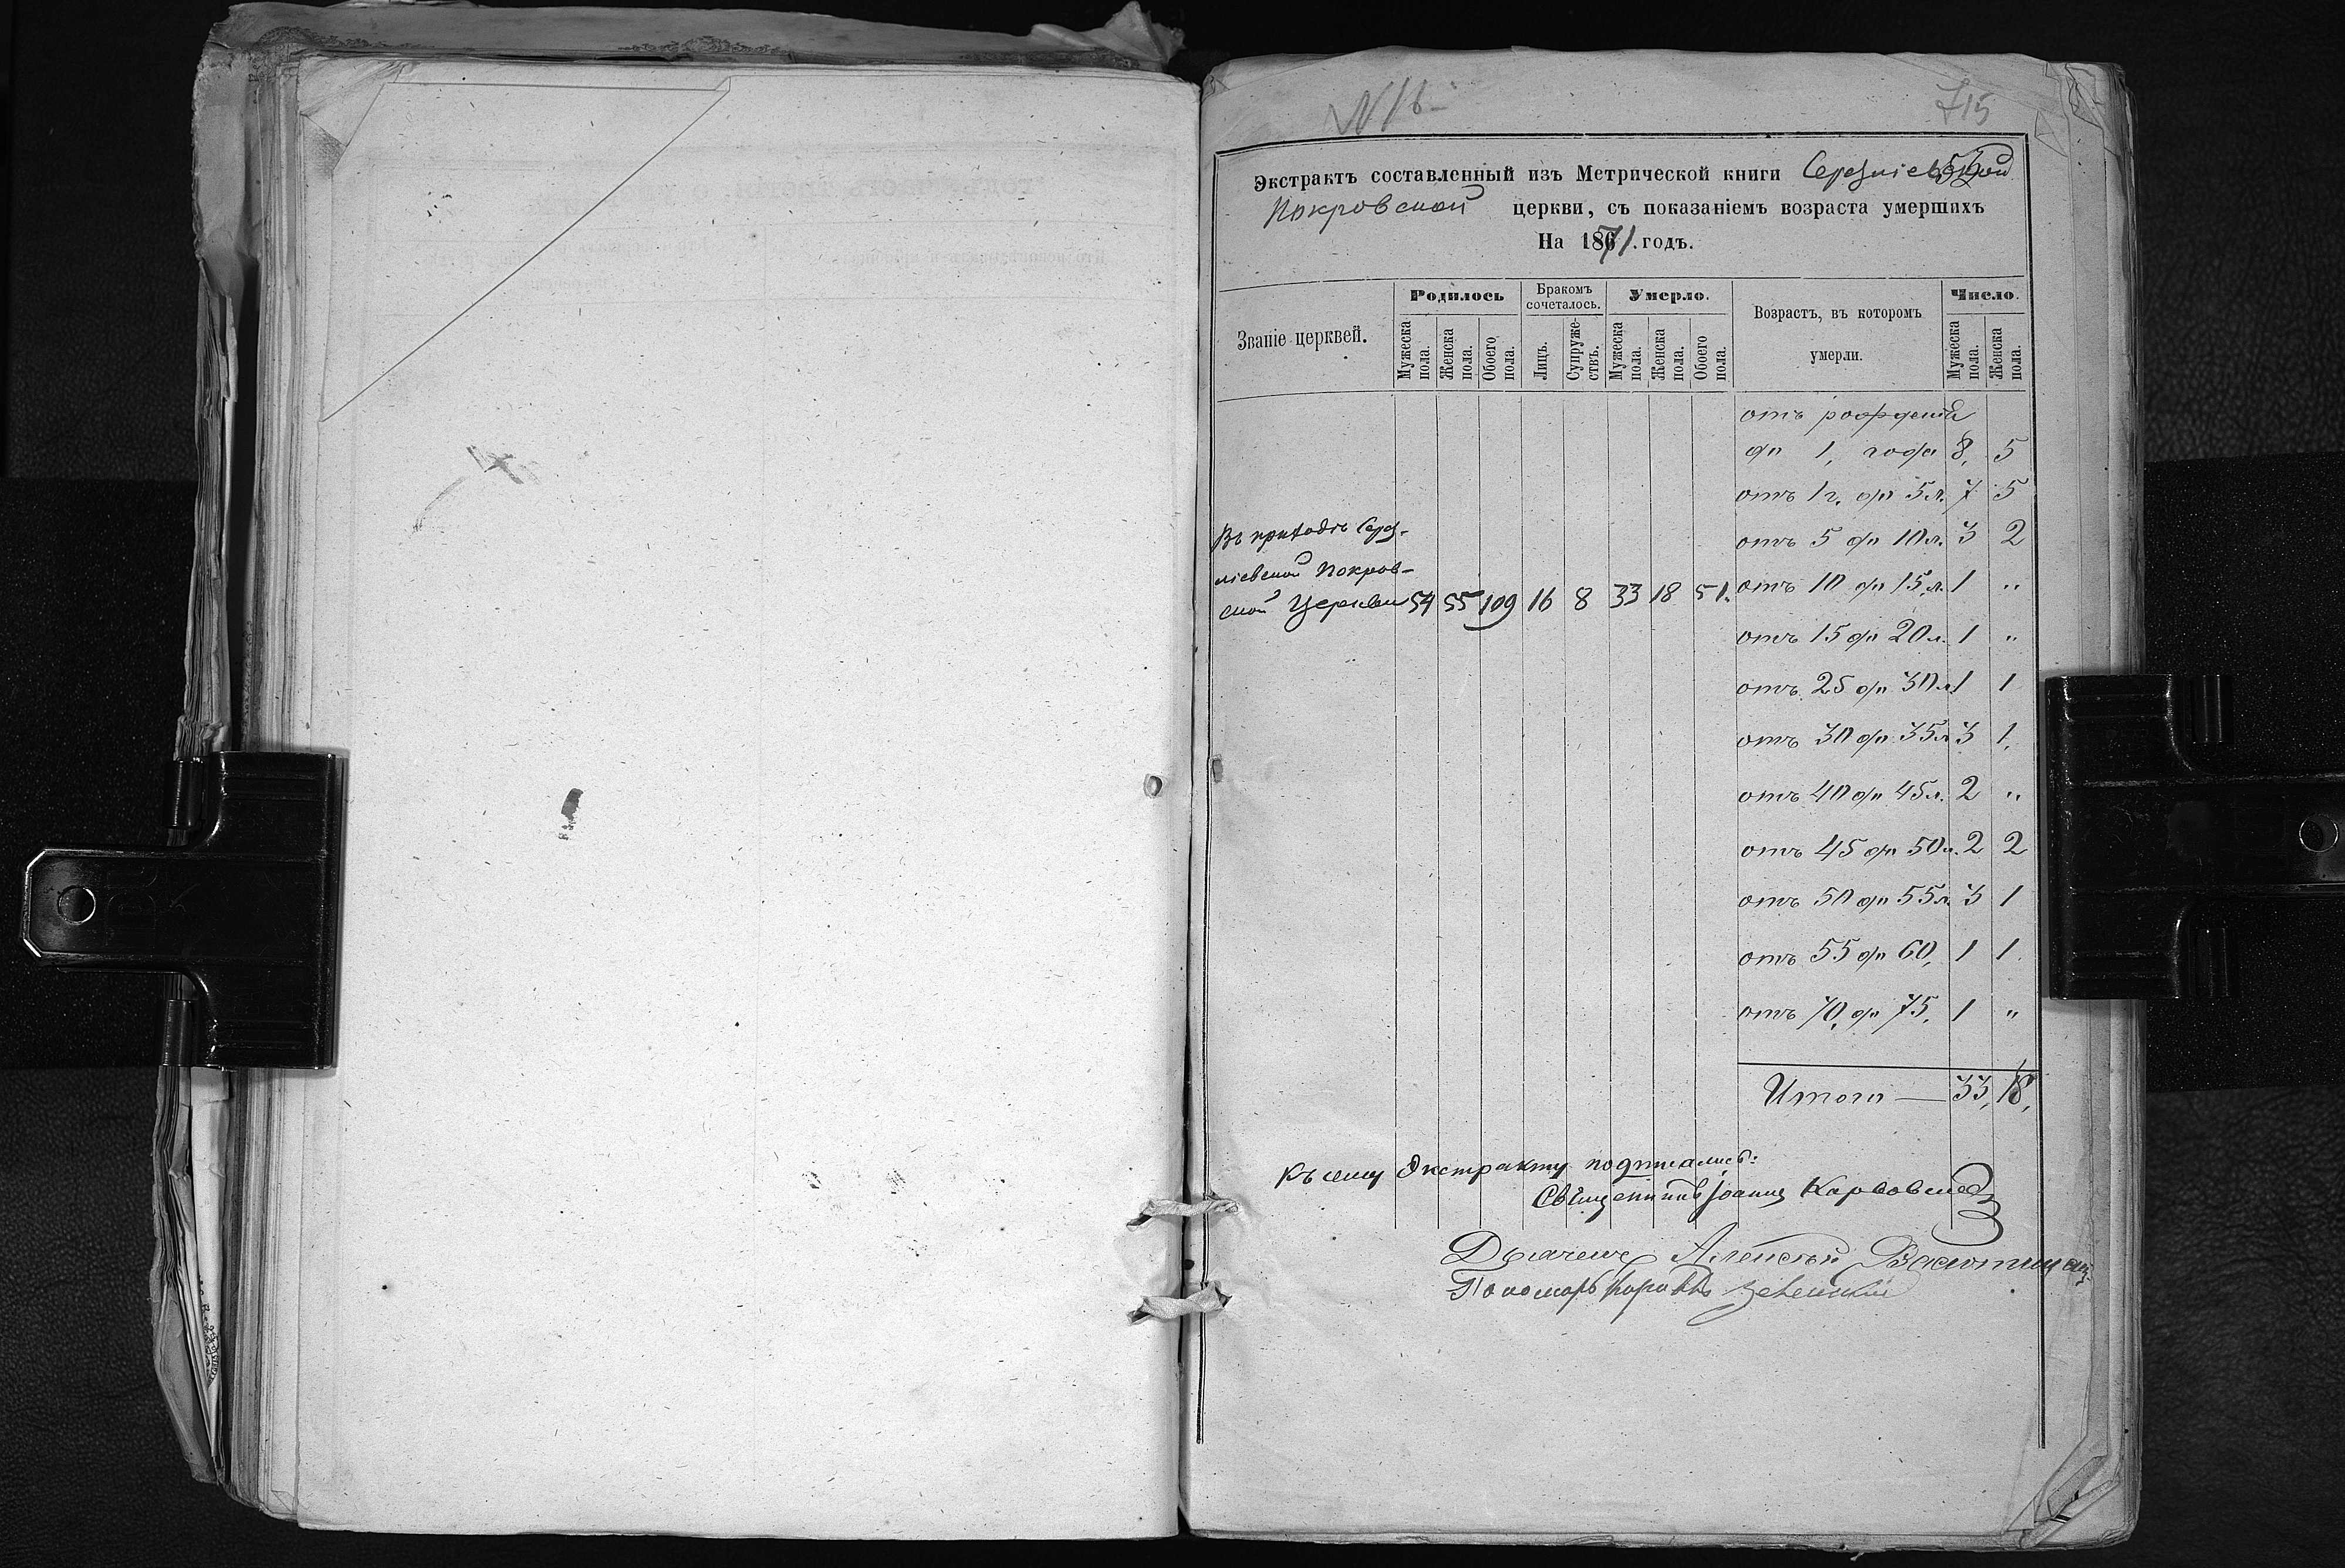 N 16
715
53
Экстрактъ составленный изъ Метрической книги Серезліевской
Покровской церкви, съ показаніемъ возраста умершихъ
На 1871 годъ.
Званіе церквей.
Родилось
Мужеска пола.
Женска пола.
Обоего пола.
Бракомъ сочеталось.
Лицъ.
Супружествъ.
Умерло.
Мужеска пола.
Женска пола.
Обоего пола.
Возрастъ, въ которомъ
умерли.
Число.
Мужеска пола.
Женска пола.
отъ рожденія
до 1, года 8, 5
отъ 1 г. до 5 л. 7 5
отъ 5 до 10 л. 3 2
отъ 10 до 15 л. 1 "
отъ 15 до 20 л. 1 "
отъ 25 до 30 л. 1 1
отъ 30 до 35 л. 3 1,
отъ 40 до 45 л. 2 "
отъ 45 до 50 л. 2 2
отъ 50 до 55 л. 3 1
отъ 55 до 60, 1 1.
отъ 70, до 75, 1 "
Итого — 33, 18,
Въ приходѣ Серез-
ліевской Покров-
ской Церкви 54 55 109 16 8 33 18 51.
Къ сему Экстракту подписались:
Священникъ Іоаннъ
Дьячекъ Алексѣй
Пономарь